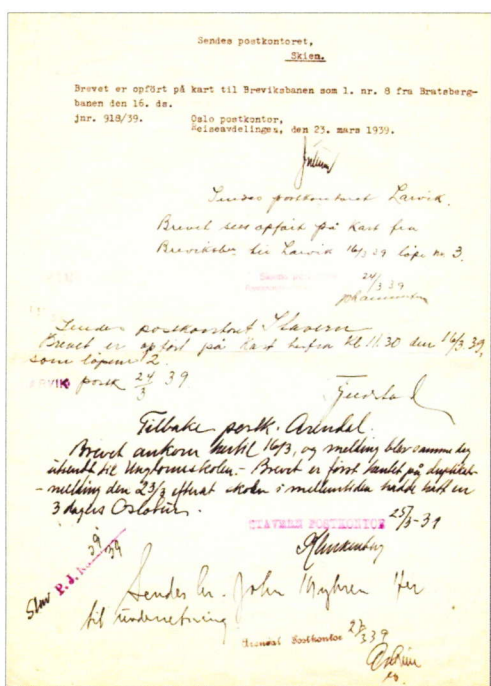 Sendes postkontoret,
Skien.
Brevet er opført på kart til Breviksbanen som l. nr. 8 fra Bratsberg-
banen den 16. ds.
jnr. 918/39. Oslo postkontor,
Reiseavdelingen, den 23. mars 1939.
Sendes postkontoret Larvik.
Brevet sees opført på kart fra
Breviksbn til Larvik 16/3 39 løpe nr. 3.
24/3 39
Sendes postkontoret Stavern
Brevet er opført på kart herfra kl 11.30 den 16/3 39,
som løpenr 2.
postk 24/3 39.
Tilbake postk. Arendal.
Brevet ankom hertil 16/3, og melding blev samme dag
utsendt til Ungdomsskolen. - Brevet er först hentet på duplikat-
-melding den 23/3 efterat skolen i mellemtiden hadde hatt en
3 dagers Oslotur.
STAVERN POSTKONTOR 25/3-39
Sendes hr. John Myhren Her
til underretning
Arendal Postkontor 27/3 39